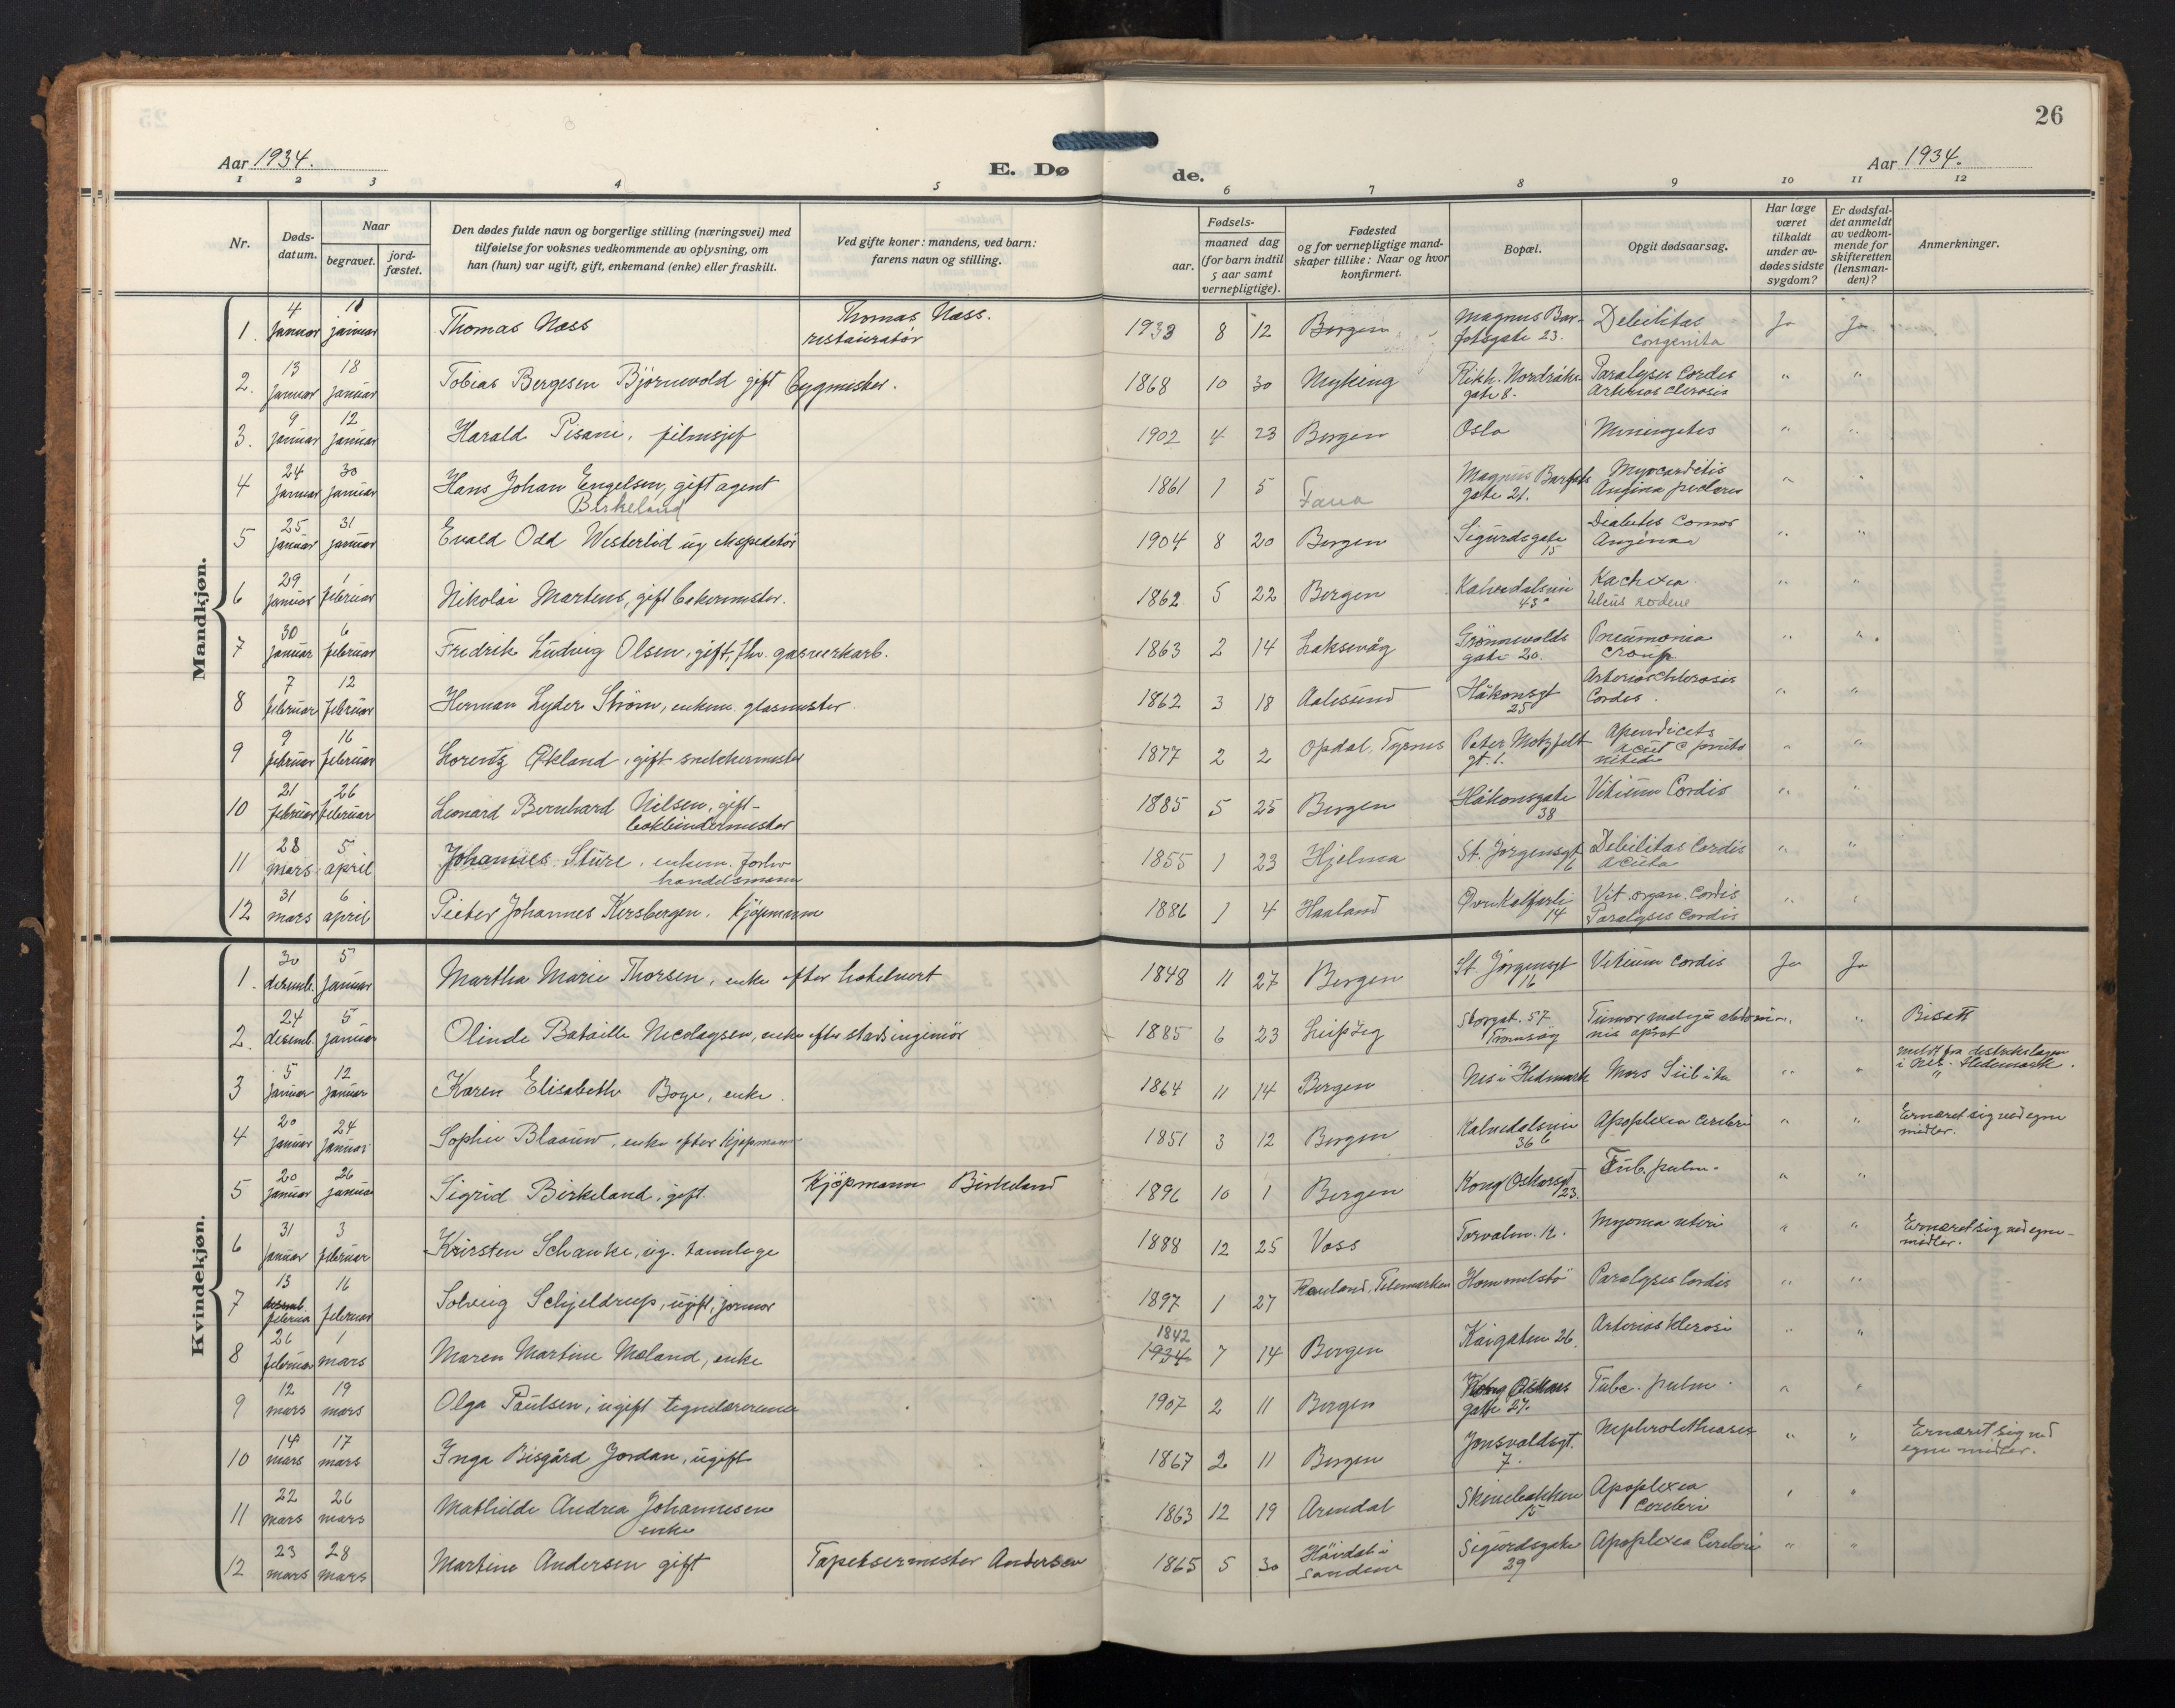 26
Aar 1934.
E. Dø
de.
Aar 1934.
1 2 3 4 5 6 7 8 9 10 11 12
Nr.
Døds-
datum.
Naar
begravet.
jord-
fæstet.
Den dødes fulde navn og borgerlige stilling (næringsvei) med
tilføielse for voksnes vedkommende av oplysning, om
han (hun) var ugift, gift, enkemand (enke) eller fraskilt.
Ved gifte koner: mandens, ved barn:
farens navn og stilling.
Fødsels-
aar.
maaned dag
(for barn indtil
5 aar samt
vernepligtige).
Fødested
og for vernepligtige mand-
skaper tillike: Naar og hvor
konfirmert.
Bopæl.
Opgit dødsaarsag.
Har læge
været
tilkaldt
under av-
dødes sidste
sygdom?
Er dødsfal-
det anmeldt
av vedkom-
mende for
skifteretten
(lensman-
den)?
Anmerkninger.
Mandkjøn.
1. 4 januar januar Thomas Næss Thomas Næss. restauratør 1933 8 12 Bergen Magnus Bar-
fotsgate 23. Debilitas congenita Ja Ja
2. 13 januar 18 januar Tobias Bergesen Björnevold gift bygmester. 1868 10 30 Myking Rikh. Nordråks
gate 8. Paralyses Cordis
Arteriosclerosis " "
3. 9 januar 12 januar Harald Pisani, filmsjef 1902 4 23 Bergen Oslo Meningitis " "
4 24 januar 30 januar Hans Johan Engelsen, gift agent
Birkeland 1861 1 5 Fana Magnus Barfots
gate 21. Myocarditis
Angina pectoris " "
5 25 januar 31 januar Evald Odd Westerlid ug ekspeditör 1904 8 20 Bergen Sigurdsgate
15 Diabetes Comor
Angina " "
6 29 januar 1 februar Nikolai Martens, gift bakermester. 1862 5 22 Bergen Kalvedalsvei
43 Kachexia
Ulcus rodens " "
7 30 januar 6 februar Fredrik Ludvig Olsen, gift, fhv. gasverkarb. 1863 2 14 Laksevåg Grönnevolds
gate 20. Pneumonia
croup " "
8 7 februar 12 februar Herman Lyder Ström, enkem. glasmester 1862 3 18 Aalesund Håkonsgt
25 Arterioschlerosis
Cordis. " "
9 9 februar 16 februar Lorentz Økland, gift snekkermester 1877 2 2 Opdal, Tysnes Peter Motzfelt
gt. 1. Apendicets
acut c " "
10 21 februar 26 februar Leonard Bernhard Nilsen, gift
bokbindermester 1885 5 25 Bergen Håkonsgate
38 Vitium Cordis " "
11 28 mars 5 april Johannes Sture, enkem. forhv
handelsmann 1855 1 23 Hjelma St. Jørgensgt
16 Debilitas Cordis
acuta " "
12 31 mars 6 april Pieter Johannes Kersbergen, Kjøpmann 1886 1 4 Haaland Øvre Kalfarli
14 Vit. organ. Cordis
Paralyses Cordis " "
Kvindekjøn.
1. 30 desemb. 5 januar Martha Marie Thorsen, enke efter hotelvert 1848 11 27 Bergen St Jörgensgt
16 Vitium Cordis Ja Ja
2. 24 desemb. 5 januar Olinde Bataille Nicolaysen, enke efter stadsingeniör 1885 6 23 Leipzig Storgt. 57
Tromsøy Tumor malign abdomi-
nis oprat " Bisatt
3 5 januar 12 januar Karen Elisabeth Boge, enke. 1864 11 14 Bergen Nes i Hedmark Mors Subita " " meldt fra distriktslægen
i Nes. Hedemark.
4 20 januar 24 januar Sophie Blaauw, enke efter kjøpmann 1851 3 12 Bergen Kalvedalsvei
36 b Apoplexia Cerebri " " Ernæret sig ved egne
midler.
5 20 januar 26 januar Sigrid Birkeland, gift. Kjöpmann Birkeland 1896 10 1 Bergen Kong Oskarsgt
23. Tub. pulm. " "
6 31 januar 3 februar Kirsten Schanke, ug. tannlege 1888 12 25 Voss Torvalm. 12. Myoma uteri " " Ernæret sig ved egne
midler.
7 13 desemb.
februar 16 februar Solveig Schjeldrup, ugift, jormor 1897 1 27 Rauland, Telemarken Hommelstø Paralyses Cordis " "
8 26 februar 1 mars Maren Martine Moland, enke 1842
1934 7 14 Bergen Kaigaten 26. Arteriosklerosi " "
9 12 mars 19 mars Olga Paulsen, ugift tegnelærerinne 1907 2 11 Bergen Kong Oskars
gate 27. Tubc. pulm. " "
10 14 mars 17 mars Inga Bisgård Jordan, ugift 1867 2 11 Bergen Jonsvoldsgt.
7. Nephrolithiasis " " Ernæret sig ved
egne midler.
11 22 mars 26 mars Mathilde Andrea Johannesen
enke 1863 12 19 Arendal Skivebakken
15 Apoplexia
Cerebri " "
12 23 mars 28 mars Martine Andersen gift Tapetsermester Andersen 1865 5 30 Håvdal i
Sandene Sigurdsgate
29 Apoplexia Cerebri " "